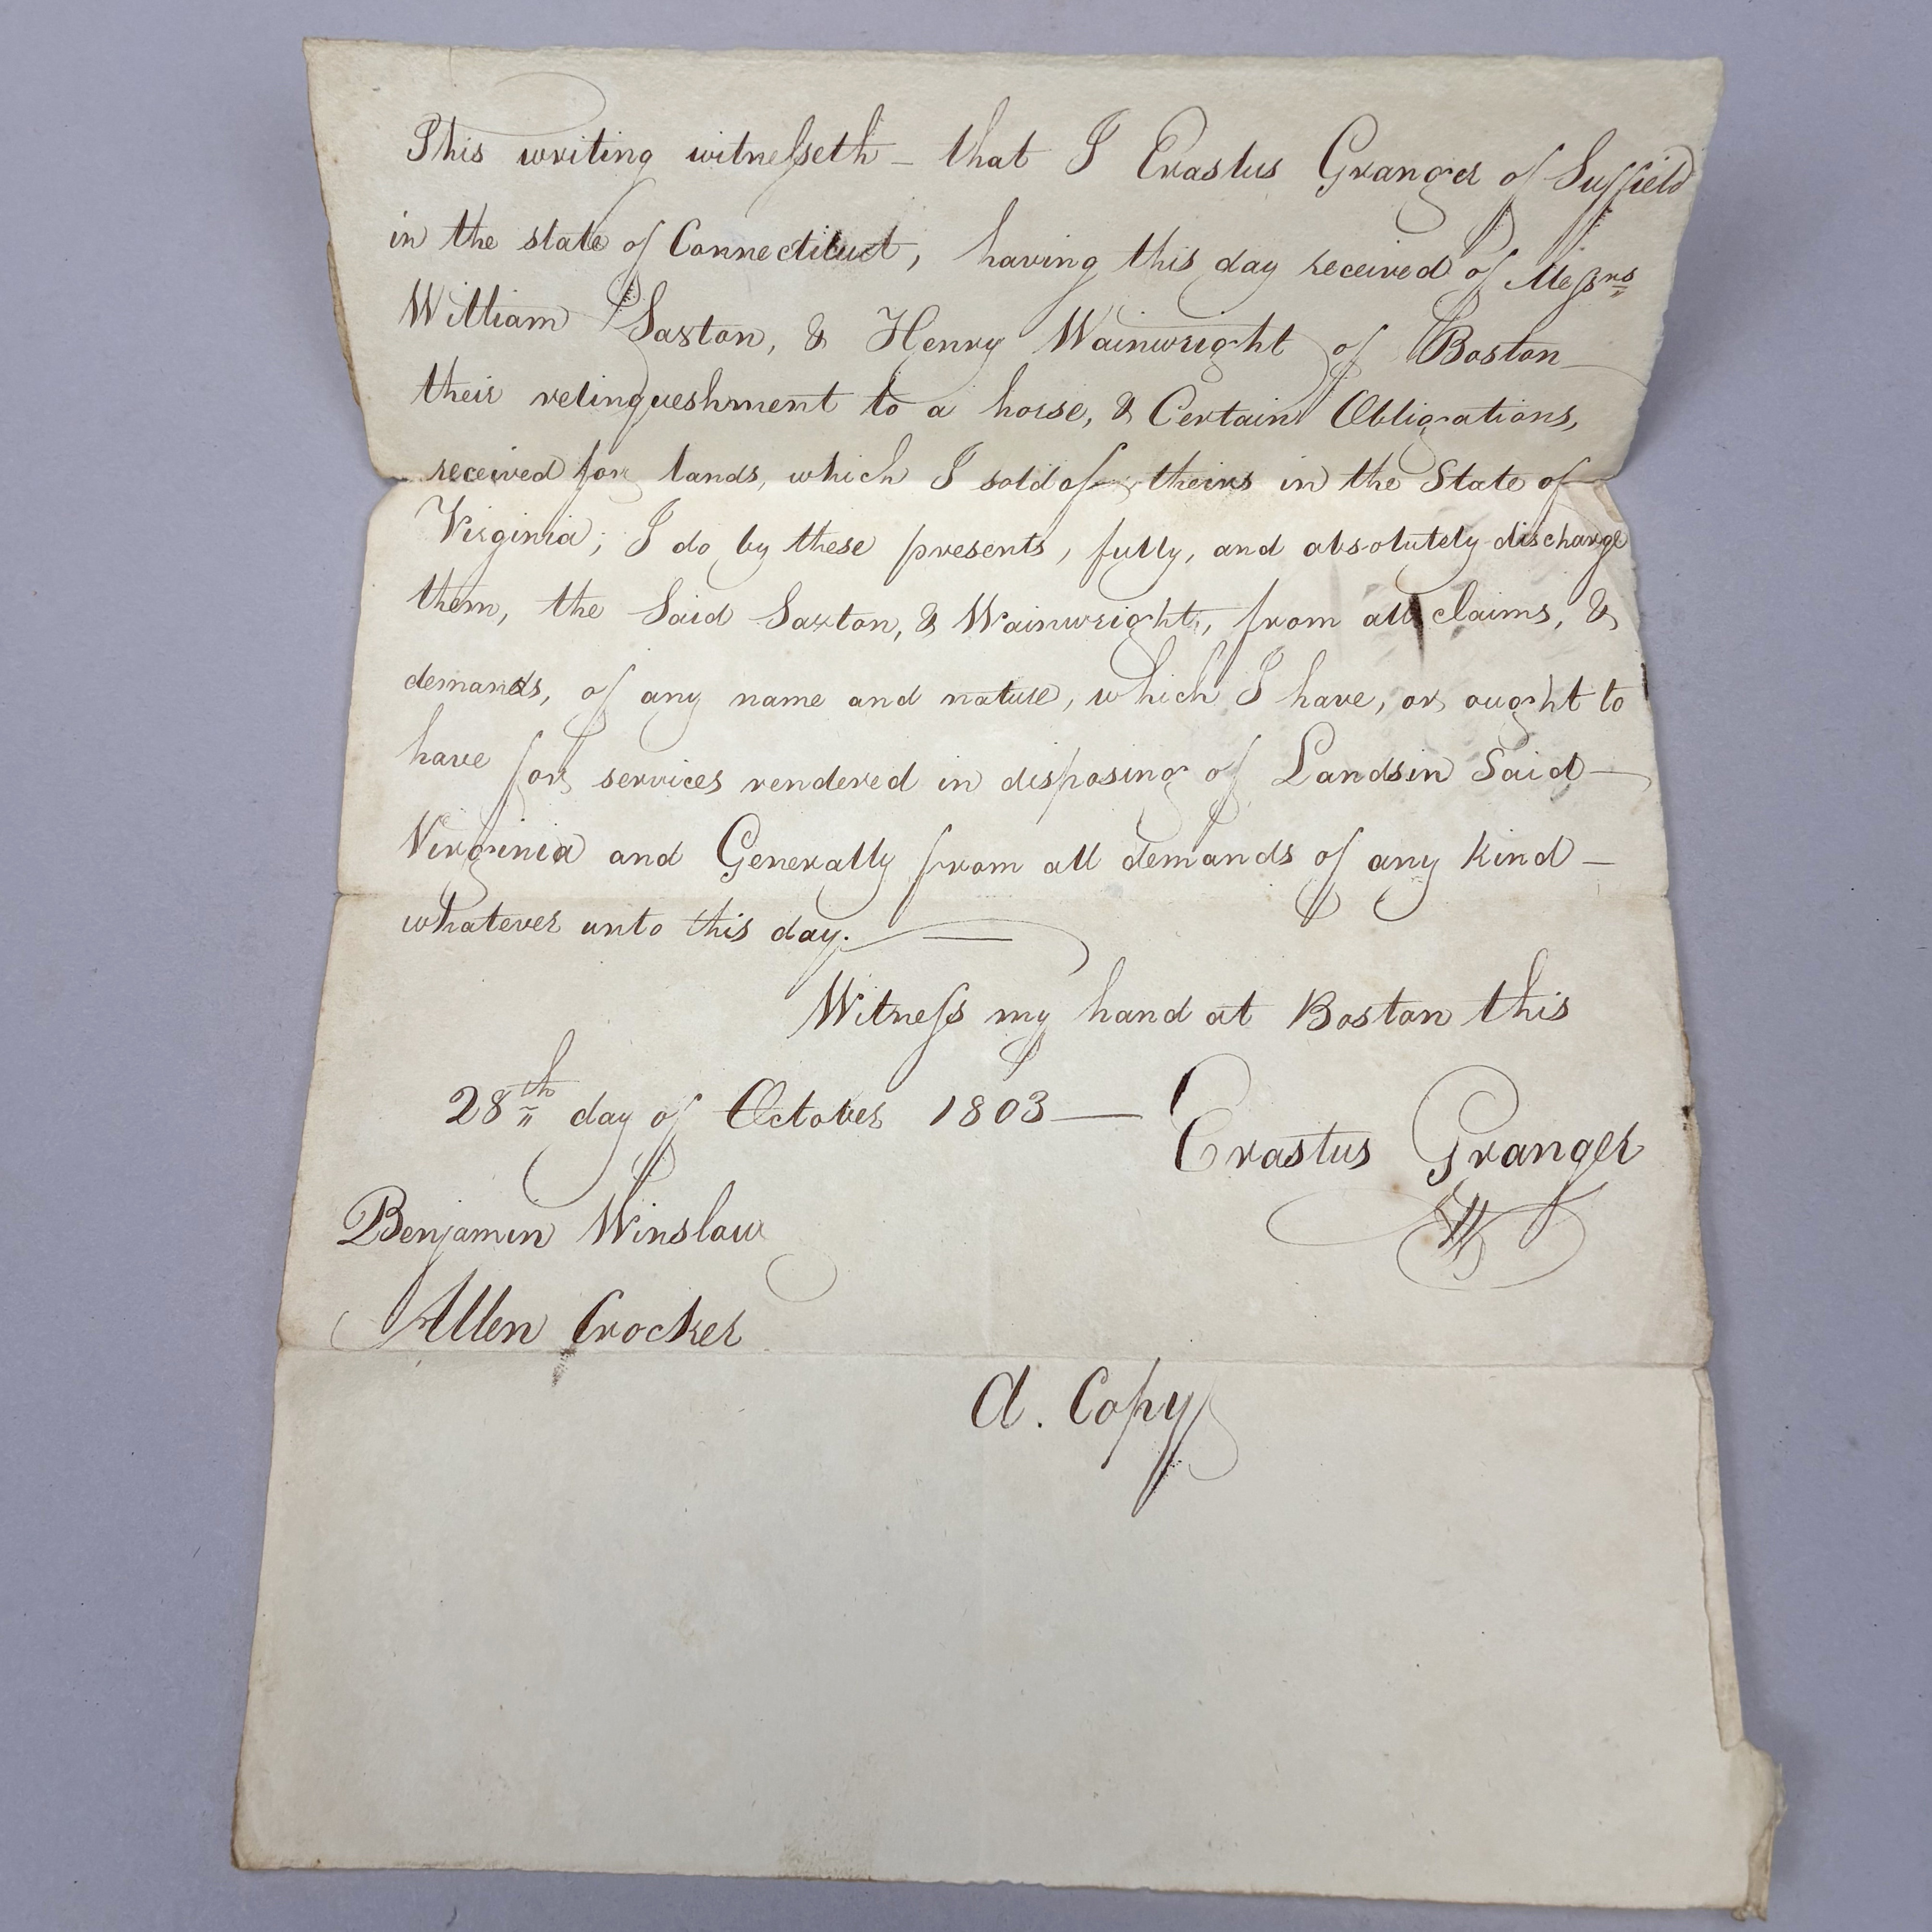 This writing witnesseth - that I Erastus Granger of Suffield
in the state of Connecticut, having this day received of Messrs
William Saxton, & Henry Wainwright of Boston
their relinqueshment to a horse, & Certain Obligations,
received for lands, which I sold of theirs in the State of
Virginia; I do by these presents, fully, and absolutely discharge
them, the Said Saxton, & Wainwright, from all claims, &
demands, of any name and nature, which I have, or ought to
have for services rendered in disposing of Lands in Said -
Virginia and Generally from all demands of any kind -
whatever unto this day. —
Witness my hand at Boston this
28th day of October 1803 —
Erastus Granger
Benjamin Winslow
Allen Crocker
A. Copy